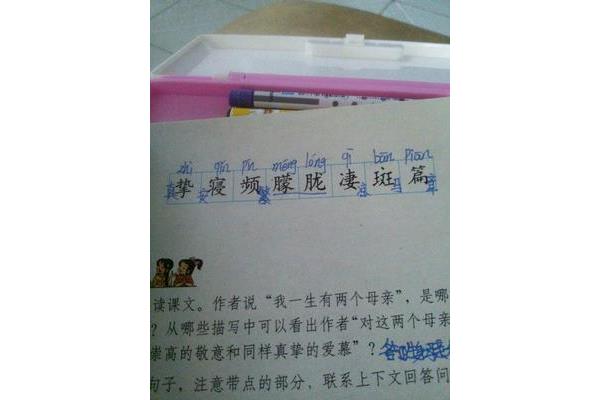 zhì qǐn pín méng lóng qī bān piān
真挚 安寝 频繁 朦胧 凄凉 斑马 篇章
读课文。作者说“我一生有两个母亲”，是哪
？从哪些描写中可以看出作者“对这两个母亲
崇高的敬意和同样真挚的爱慕”？
句子，注意带点的部分，联系上下文回答问